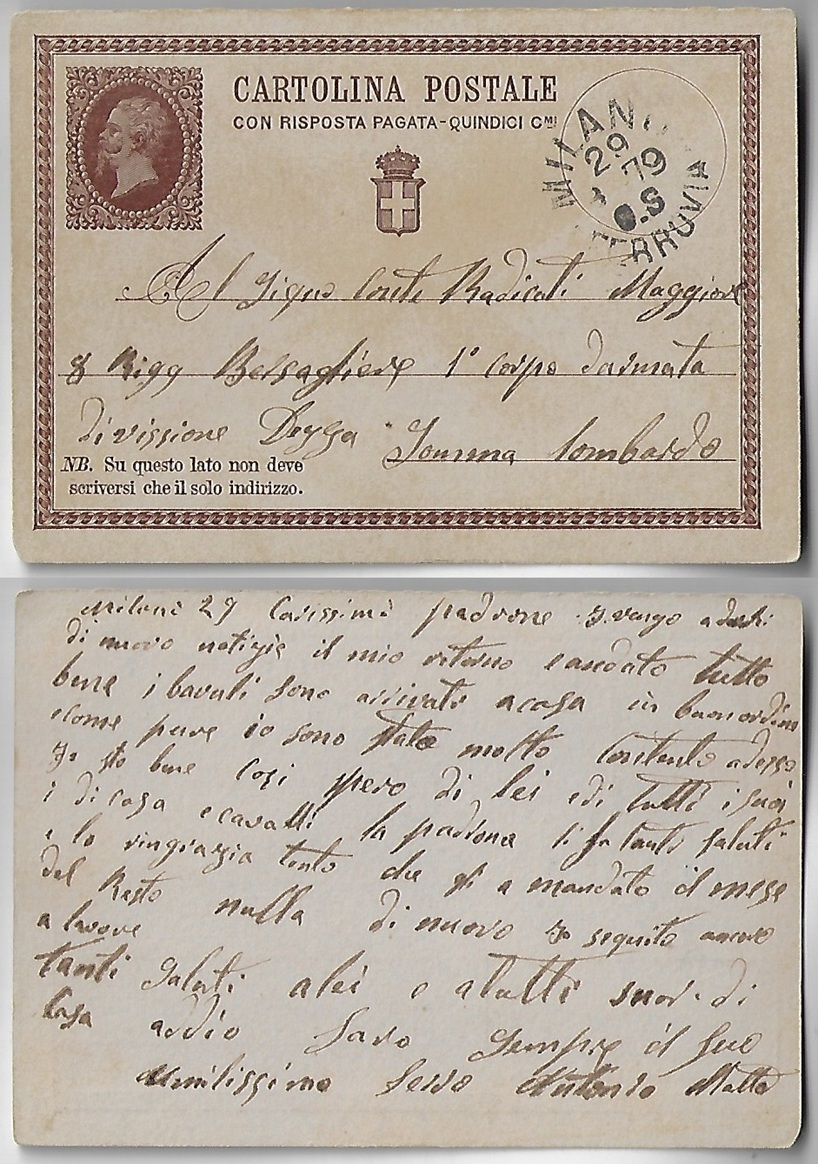 CARTOLINA POSTALE
CON RISPOSTA PAGATA-QUINDICI CMI
MILANO
29
79
FERRUVIA
Al Signo Conte Radicati Maggiore
8 Rigg Bersagliere 1° corpo darmata
divissione Somma lombardo
NB. Su questo lato non deve
scriversi che il solo indirizzo.
29 Carissimo padrone
di nuovo notizie il mio ritorno eandato tutto
bene i bavuli sono arrivati acasa in buonordine
ecome pure io sono stato molto Contento adesso
Io sto bene Cosi spero di lei edi tutti i suoi
di casa ecavalli la padrona li fa tanti saluti
e lo ringrazia tanto che gli a mandato il mese
del Resto nulla di nuovo Io seguito ancora
a lavore
tanti Saluti alei e atutti di
Casa addio Saro Sempre il Suo
umilissimo Servo Antonio